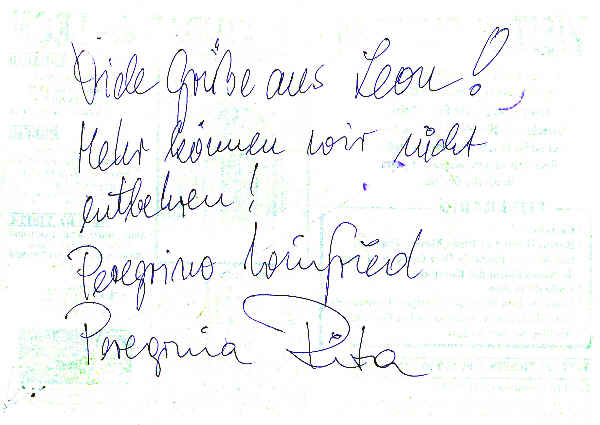 Viele Grüße aus Leon!
Mehr können wir nicht
entbehren!
Peregrino Winfried
Peregrina Rita